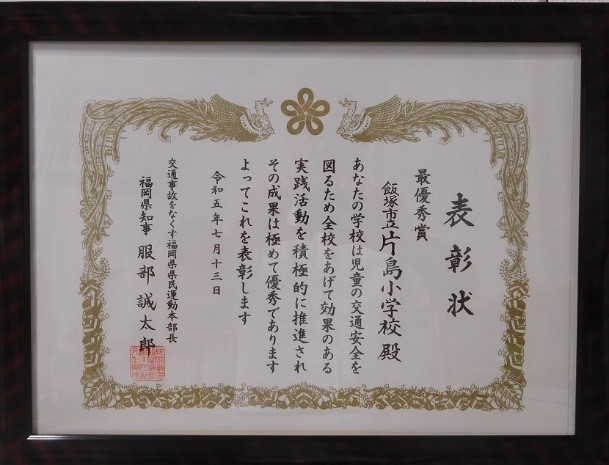 表彰状
最優秀賞
飯塚市立片島小学校殿
あなたの学校は児童の交通安全を
図るため全校をあげて効果のある
実践活動を積極的に推進され
その成果は極めて優秀であります
よってこれを表彰します
令和五年七月十三日
交通事故をなくす福岡県県民運動本部長
福岡県知事 服部誠太郎